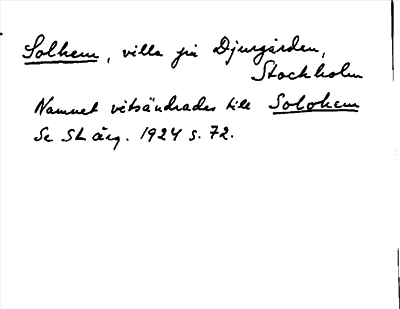 Solhem, villa på Djurgården,
Stockholm
Namnet vitsändrades till Solohem
Se St årg. 1924 s. 72.